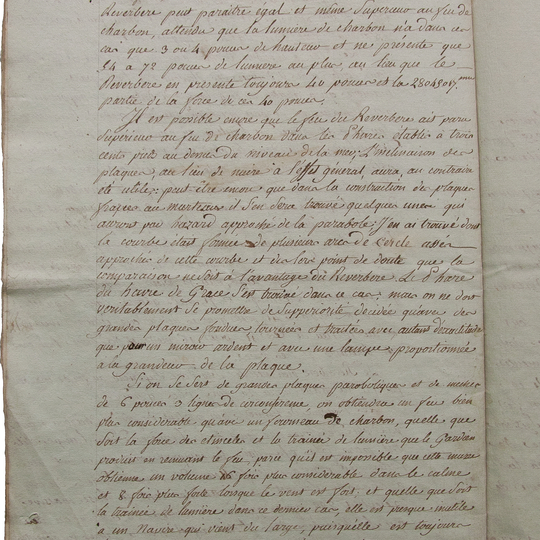 Reverbere peut paraitre egal et même Superieur au feu de
charbon, attendu que la lumiere de charbon n'a dans ce
cas que 3 ou 4 pouces de hauteur et ne presente que
54 a 72 pouces de lumiere au plus, au lieu que le
Reverbere en presente toujours 40 pouces et la
partie de la force de ces 40 pouces.
Il est possible encore que le feu du Reverbere ait paru
Superieur au feu de charbon dans les Phares etablis a trois
cents pieds au dessus du niveau de la mer; l'inclinaison des
plaques, au lieu de nuire à l'effet général, aura, au contraire
été utile; peut être encore que dans la construction des plaques
frapées au marteau il s'en sera trouvé quelques unes qui
auront par hazard approché de la parabole: J'en ai trouvé dont
la courbe etait formée de plusieurs arcs de Cercle assés
approchés de cette courbe et des lors point de doute que la
comparaison ne soit à l'avantage du Reverbere. Le Phare
du havre de Grace s'est trouvé dans ce cas; mais on ne doit
veritablement se promettre de Supperiorité décidée qu'avec des
grandes plaques fondues, tournées et traitées avec autant d'exactitude
que pour un miroir ardent et avec une lampe proportionnée
a la grandeur de la plaque.
Si on se sert de grandes plaques paraboliques et de meches
de 6 pouces 3 lignes de circonference, on obtiendra un feu bien
plus considerable qu'avec un fourneau de charbon, quelle que
soit la force des etincelles et la trainée de lumière que le Gardien
produit en remuant le feu, parce qu'il est impossible que cette masse
obtienne un volume 16 fois plus considerable dans le calme
et 8 fois plus forte lorsque le vent est fort, et quelle que soit
la trainée de lumière dans ce dernier cas, elle est presque inutile
a un Navire qui vient du large, puisqu'elle est toujours